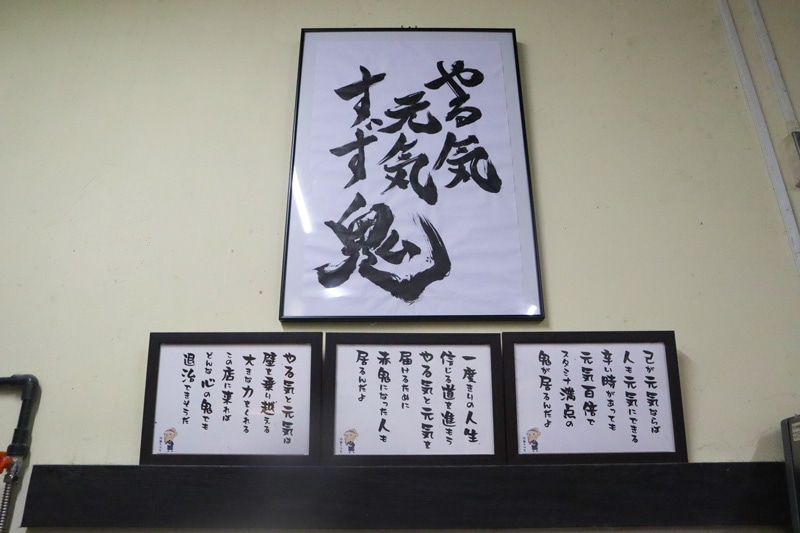 やる気
元気
すゞず
鬼
己が元気ならば
人も元気にできる
辛い時があっても
元気百倍で
スタミナ満点の
鬼が居るんだよ
一度きりの人生
信じる道を進もう
やる気と元気を
届けるために
赤鬼になった人も
居るんだよ
やる気と元気は
壁を乗り越える
大きな力をくれる
この店に来れば
どんな心の鬼でも
退治できそうだ